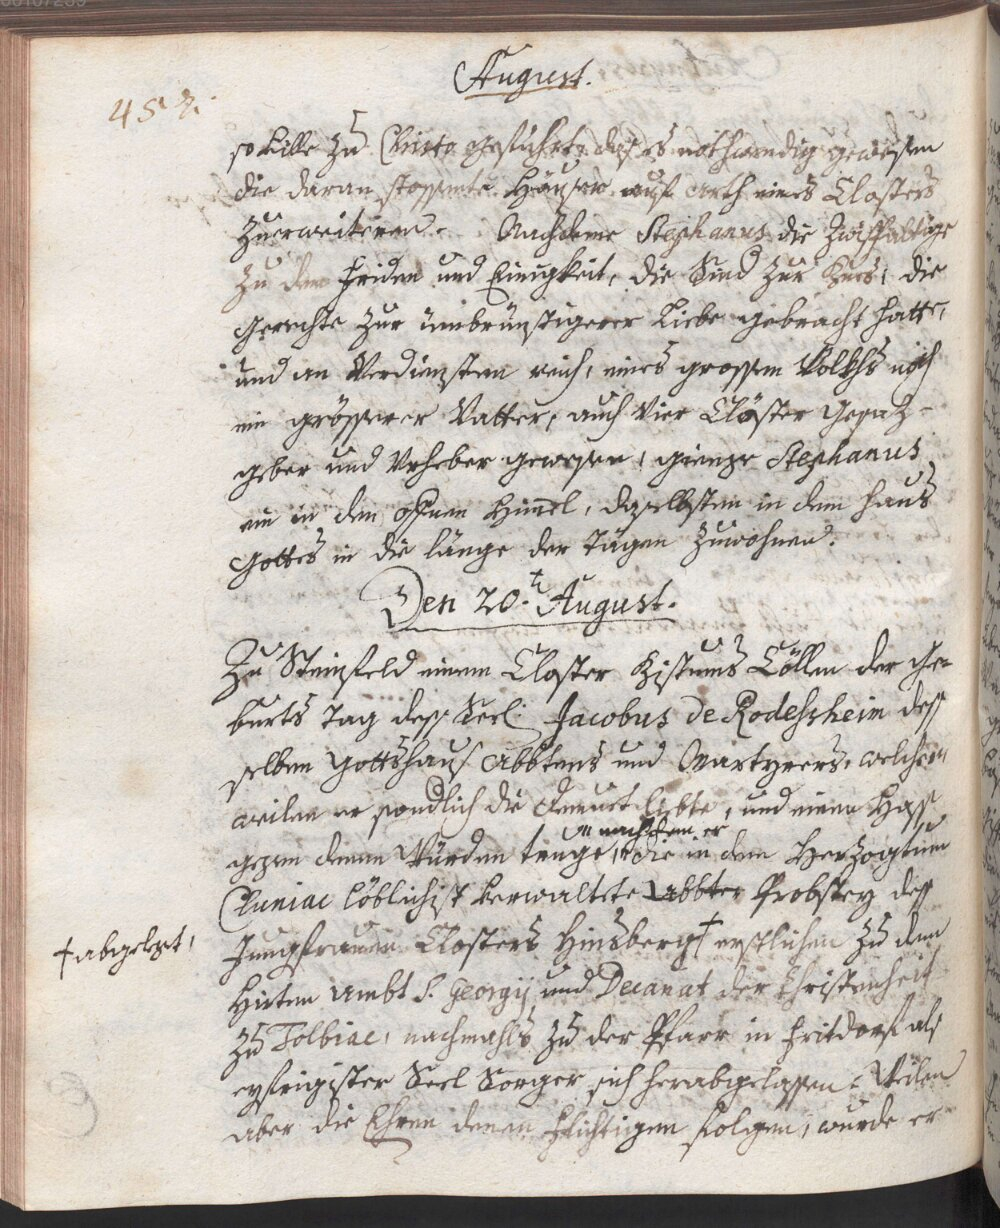 00107259
August.
452.
so Ville zu Christo gefuhrt, daß es nothwendig gewesen
die daran stossente Häuser auf arth eines Closters
zuerweiteren. Nachdeme Stephanus die Zwispaltige
zu dem Friden und Einigkeit, die Sind zur Bues, die
Gerechte zur inbrünstigerer Liebe gebracht hatte,
und an Verdiensten reich, eines grossen Volkhs noch
ein grösserer Vatter, auch Vier Clöster Gesaz-
geber und Vrheber gewesen, gienge Stephanus
ein in den offnen Himel, daselbsten in dem Haus
Gottes in die länge der Tägen zuwohnen.
Den 20.t August.
Zu Steinfeld einem Closter Bistums Cöllen der Ge-
burts Tag dess Seel. Jacobus de Rodelsheim dess
selben Gottshaus Abbtens und Martyrers, welcher
weilen er sondlich die Demuet liebte, und einen Hass
gegen denen Würden truge, nachdem er
die in dem Herzogtum
Cluniac löblichist Verwaltete Abbter Probstey dess
Jungfrauen Closters Hinsberg † erstlichen zu dem
† abgelegt,
Hirten Ambt S. Georgij und Decanat der Christenheit
zu Tolbiac, nachmahls zu der Pfarr in Fritdorf als
eyfrigister Seel Sorger sich herabgelassen. Weilen
aber die Ehren denen Flichtigen folgen, wurde er